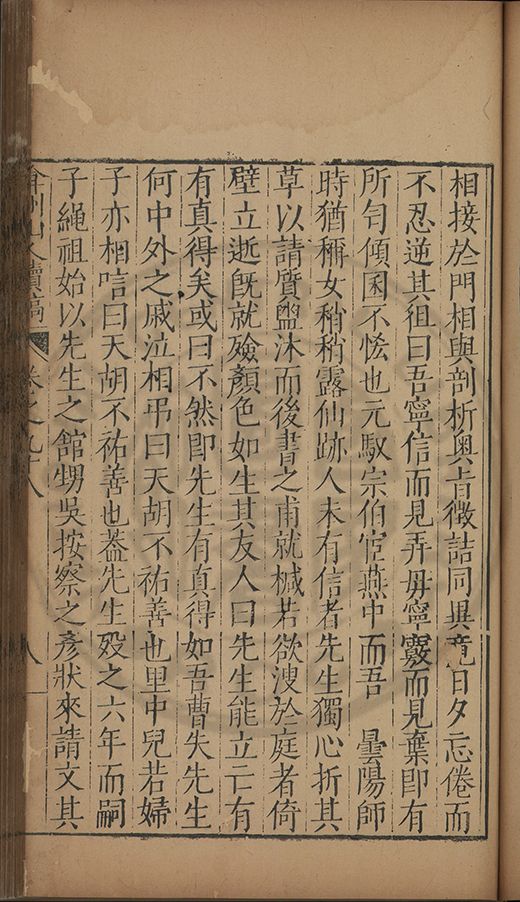 相接於門相與剖析奧旨徵詰同異竟日夕忘倦而
不忍逆其徂曰吾寧信而見弄毋寧竅而見棄即有
所匄傾囷不恡也元馭宗伯宦燕中而吾 曇陽師
時猶稱女稍稍露仙跡人未有信者先生獨心折其
草以請質盥沐而後書之甫就槭若欲溲於庭者倚
壁立逝既就殮顏色如生其友人曰先生能立亡有
有真得矣或曰不然即先生有真得如吾曹失先生
何中外之戚泣相弔曰天胡不祐善也里中兒若婦
子亦相唁曰天胡不祐善也葢先生歿之六年而嗣
子繩祖始以先生之館甥吳按察之彥狀來請文其
續稿 卷之九十八 八